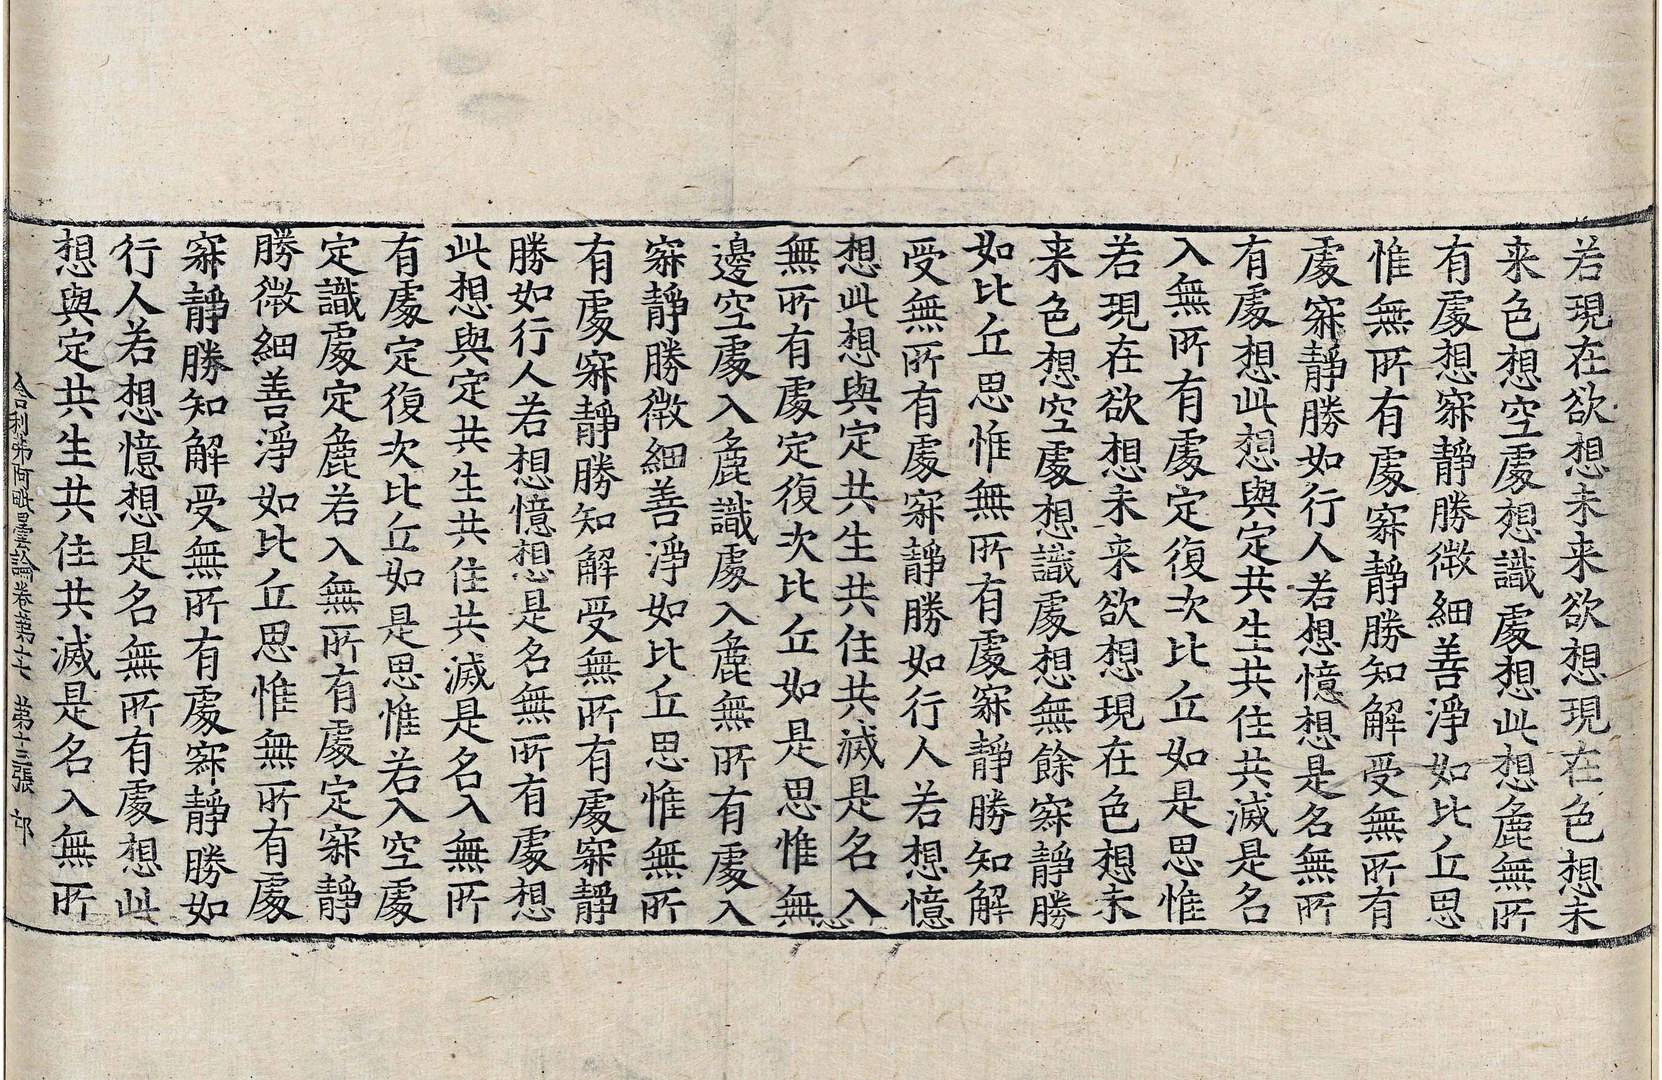 若現在欲想未来欲想現在色想未
来色想空處想識處想此想麁無所
有處想寂靜勝微細善淨如比丘思
惟無所有處寂靜勝知解受無所有
處寂靜勝如行人若想憶想是名無所
有處想此想與定共生共住共滅是名
入無所有處定復次比丘如是思惟
若現在欲想未来欲想現在色想未
来色想空處想識處想無餘寂靜勝
如比丘思惟無所有處寂靜勝知解
受無所有處寂靜勝如行人若想憶
想此想與定共生共住共滅是名入
無所有處定復次比丘如是思惟無
邊空處入麁識處入麁無所有處入
寂靜勝微細善淨如比丘思惟無所
有處寂靜勝知解受無所有處寂靜
勝如行人若想憶想是名無所有處想
此想與定共生共住共滅是名入無所
有處定復次比丘如是思惟若入空處
定識處定麁若入無所有處定寂靜
勝微細善淨如比丘思惟無所有處
寂靜勝知解受無所有處寂靜勝如
行人若想憶想是名無所有處想此
想與定共生共住共滅是名入無所
舍利弗阿毗曇論卷第十七 第十三張 邙